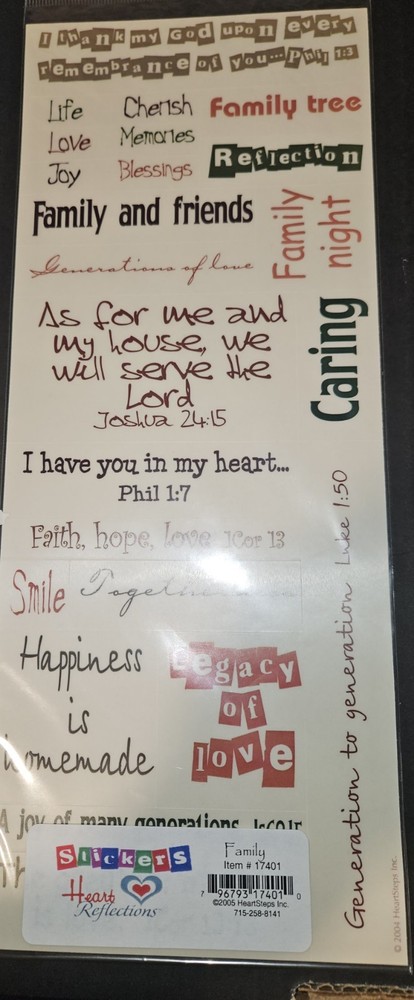 I thank my God upon every
remembrance of you...Phil 1:3
Life
Love
Joy
Cherish
Memories
Blessings
Family tree
Reflection
Family and friends
Family
night
Generations of love
Caring
As for me and
my house, we
will serve the
Lord
Joshua 24:15
I have you in my heart...
Phil 1:7
Faith, hope, love 1Cor 13
Smile
Happiness
is
homemade
Legacy
of
love
Generation to generation Luke 1:50
A joy of many generations
Stickers
Heart
Reflections
Family
Item # 17401
7 96793 17401 0
©2005 HeartSteps Inc.
715-258-8141
© 2004 HeartSteps Inc.